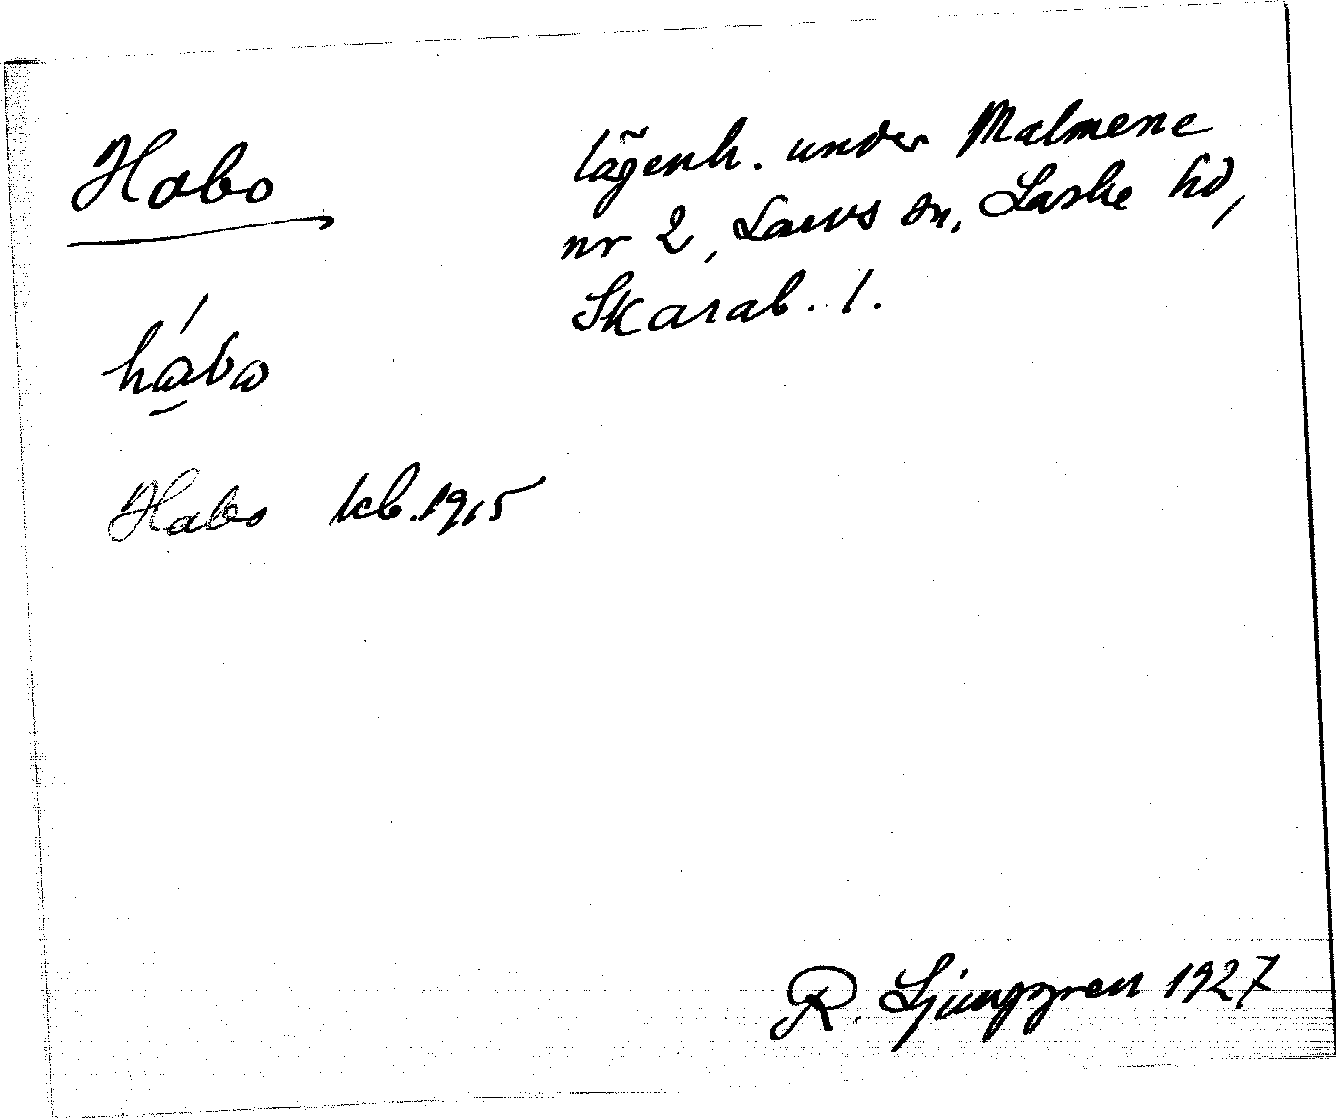 Habo
lägenh. under Malmene
nr 2, Laers sn, Laske hd,
Skarab. l.
hábω
Habo kb. 1915
R. Ljunggren 1927